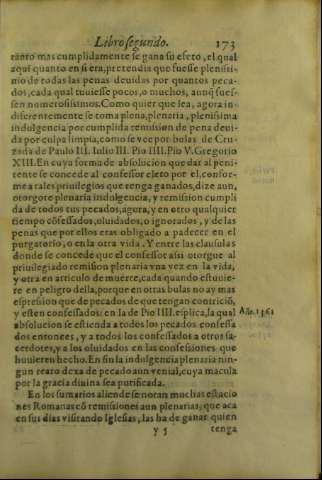 Libro segundo. 173
tanto mas cumplidamente se gana su efeto, el qual
aqui quanto en si era, pretendia que fuesse plenissi-
mo de todas las penas deuidas por quantos peca-
dos, cada qual tuuiesse pocos, o muchos, aunq̃ fues-
sen numerosissimos. Como quier que sea, agora in-
diferentemente se toma plena, plenaria, plenissima
indulgencia por cumplida remission de pena deui-
da por culpa limpia, como se vee por bulas de Cru-
zada de Paulo III. Iulio III. Pio IIII. Pio V. Gregorio
XIII. En cuya forma de absolucion que dar al peni-
tente se concede al confessor eleto por el, confor-
me a tales priuilegios que tenga ganados, dize aun,
otorgote plenaria indulgencia, y remission cumpli
da de todos tus pecados, agora, y en otro qualquier
tiempo cõfessados, oluidados, o ignorados, y de las
penas que por ellos eras obligado a padecer en el
purgatorio, o en la otra vida. Y entre las clausulas
donde se concede que el confessor assi otorgue al
priuilegiado remission plenaria vna vez en la vida,
y otra en articulo de muerte, cada quando estuuie-
re en peligro della, porque en otras bulas no ay mas
espression que de pecados de que tengan contriciõ,
y esten confessados: en la de Pio IIII. esplica, la qual
Año. 1561
absolucion se estienda a todos los pecados confessa
dos entonces, y a todos los confessados a otros sa-
cerdotes, y a los oluidados en las confessiones que
huuieren hecho. En fin la indulgencia plenaria nin-
gun reato dexa de pecado aun venial, cuya macula
por la gracia diuina sea purificada.
En los sumarios aliende se notan muchas estacio
nes Romanas cõ remissiones aun plenarias, que aca
en sus dias visitando Iglesias, las ha de ganar quien
y 5 tenga